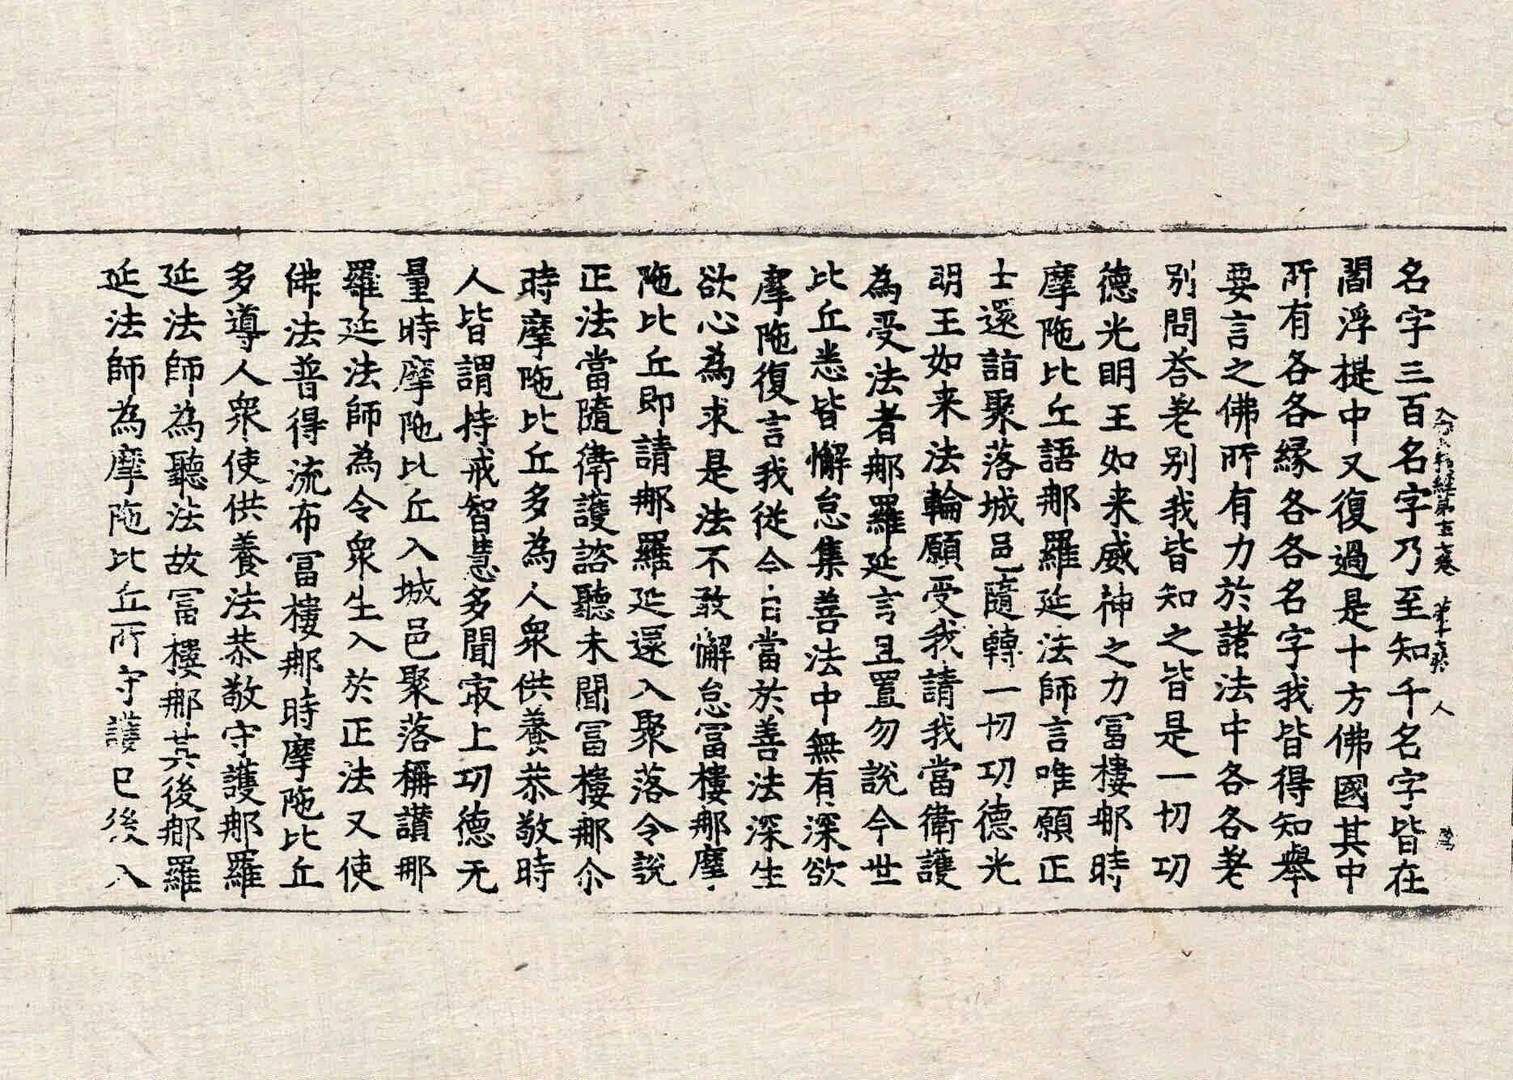 名字三百名字乃至知千名字皆在
閻浮提中又復過是十方佛國其中
所有各各縁各各名字我皆得知舉
要言之佛所有力於諸法中各各差
別問荅差別我皆知之皆是一切功
德光明王如来威神之力冨樓那時
摩陁比丘語那羅延法師言唯願正
士還詣聚落城邑隨轉一切功德光
明王如来法輪願受我請我當衛護
為受法者那羅延言且置勿說今世
比丘悉皆懈怠集善法中無有深欲
摩陁復言我從今日當於善法深生
欲心為求是法不敢懈怠冨樓那摩
陁比丘即請那羅延還入聚落令說
正法當隨衛護諮聽未聞冨樓那尒
時摩陁比丘多為人衆供養恭敬時
人皆謂持戒智慧多聞㝡上功德无
量時摩陁比丘入城邑聚落稱讃那
羅延法師為令衆生入於正法又使
佛法普得流布冨樓那時摩陁比丘
多導人衆使供養法恭敬守護那羅
延法師為聽法故冨樓那其後那羅
延法師為摩陁比丘所守護已後入